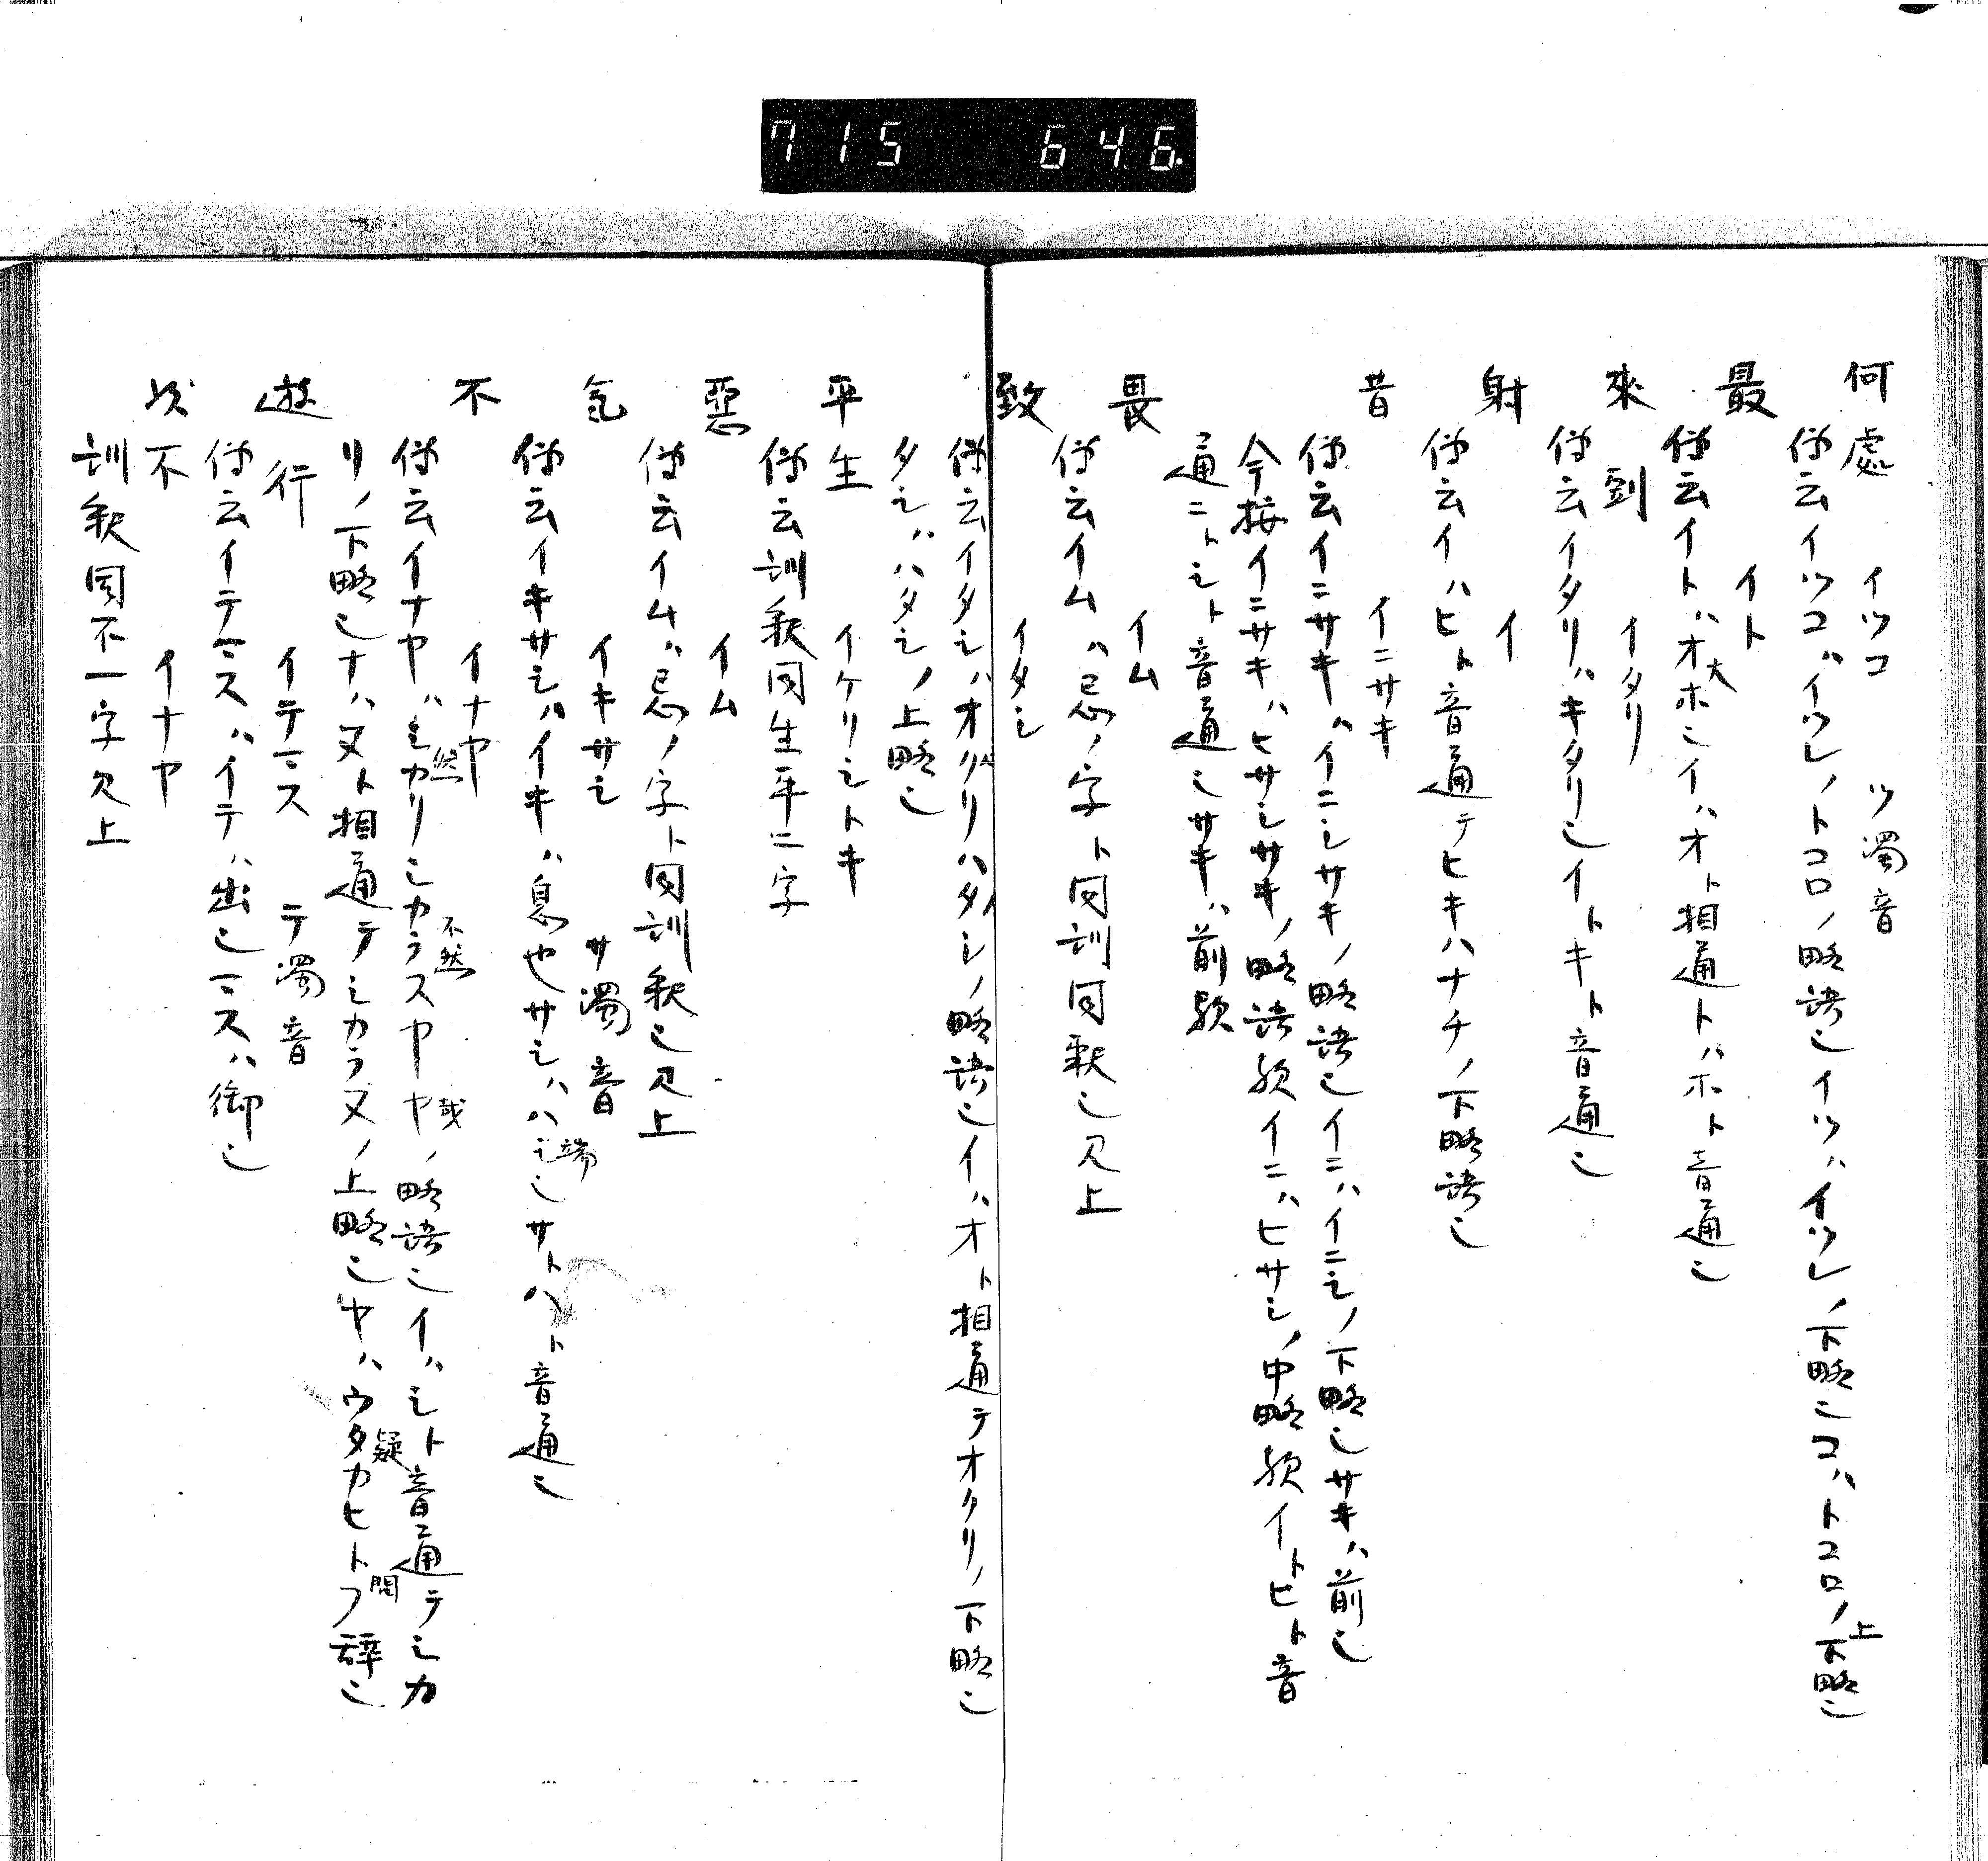 715 646.
何處 イツコ ツ濁音
傳云イツコハイツレノトコロノ略語也イツハイツレノ下略也コハトコロノ上下略也
最 イト
傳云イトハオホ大也イハオト相通トハホト音通也
來到 イタリ
傳云イタリハキタリ也イトキト音通也
射 イ
傳云イハヒト音通テヒキハナチノ下略語也
昔 イニサキ
傳云イニサキハイニシサキノ略語也イニハイニシノ下略也サキハ前也
今按イニサキハヒサシサキノ略語歟イニハヒサシノ中略歟イトヒト音
通ニトシト音通也サキハ前歟
畏 イム
傳云イムハ忌ノ字ト同訓同釈也见上
致 イタシ
傳云イタシハオクリハタシノ略語也イハオト相通テオクリノ下略也
タシハハタシノ上略也
平生 イケリシトキ
傳云訓釈同生平二字
惡 イム
傳云イムハ忌ノ字ト同訓釈也见上
氣 イキサシ サ濁音
傳云イキサシハイキハ息也サシハハシ端也サトハト音通也
不 イナヤ
傳云イナヤハシカリ然シカラスヤ不然ヤ哉ノ略語也イハシト音通テシカ
リノ下略也ナハヌト相通テシカラヌノ上略也ヤハウタカヒ疑トフ問辞也
遊行 イテマス テ濁音
傳云イテマスハイテハ出也マスハ御也
以不 イナヤ
訓釈同不一字见上